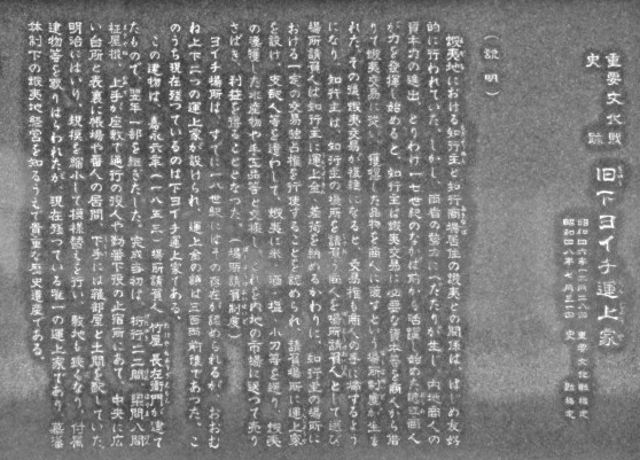 重要文化財
史 跡
旧下ヨイチ運上家
昭和四六年一二月二八日 重要文化財指定
昭和四八年 七月三一日 史 跡 指定
(説 明)
蝦夷地における知行主と知行商場居住の蝦夷との関係は、はじめ友好
的に行われていた。しかし、両者の勢力にへだたりが生じ、内地商人の
資本力の進出、とりわけ一七世紀のなかば頃から活躍し始めた近江商人
が力を発揮し始めると、知行主は蝦夷交易に必要な資本等を商人から借
りて蝦夷交易に従い、獲得した品物を商人に渡すという場所制度が生ま
れた。その後蝦夷交易が複雑になると、交易権も商人の手に帰するよう
になり、知行主は、知行主の場所を請負う商人を場所請負人として選び
場所請負人は知行主に運上金、差荷を納めるかわりに、知行主の場所に
おける一定の交易独占権を行使することを認められ、請負場所に運上家
を設け、支配人等を遣わして、蝦夷に米、酒、塩、小刀等を送り、蝦夷
の漁獲した水産物や手工品等と交換し、これを内地の市場に送って売り
さばき、利益を得ることとなった。(場所請負制度)
ヨイチ場所は、すでに一八世紀にはその存在が認められるが、おおむ
ね上下二つの運上家が設けられ、運上金の額は三百両前後であった。こ
のうち現在残っているのは下ヨイチ運上家である。
この建物は、嘉永六年(一八五三)場所請負人 竹屋長左衛門が建て
たもので、翌年一部を継ぎたした。完成当初は、桁行二二間、梁間八間
柾屋根、上手が座敷で通行の役人や勤番下役の止宿所にあて、中央に広
い台所と表裏に帳場や番人の居間、下手には雑部屋と土間を配していた。
明治にはいり、規模を縮小して模様替えを行い、敷地も狭くなり、付属
建物等を取りはらわれたが、現在残っている唯一の運上家であり、幕藩
体制下の蝦夷地経営を知るうえで貴重な歴史遺産である。